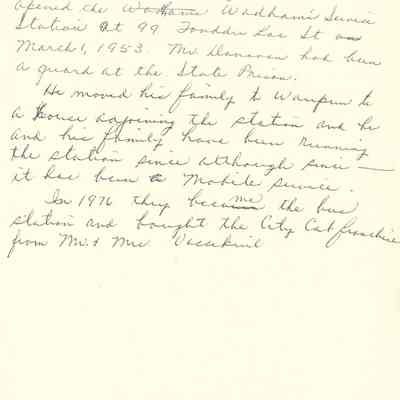 opened the Wadhams Wadham's Service
Station at 99 Fonddu Lac St on
March 1, 1953. Mr. Donovan had been
a guard at the State Prison.
He moved his family to Waupun to
a house adjoining the station and he
and his family have been running
the station since although since —
it has been a Mobile service.
In 1976 they became the bus
station and bought the City Cab franchise
from Mr. & Mrs.